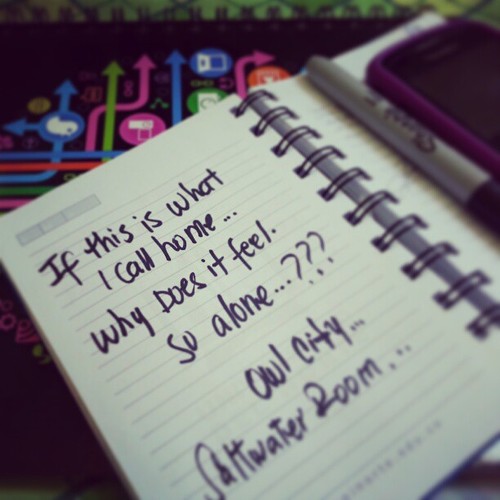 If this is what
I call home...
why Does it feel.
so alone...???
owl city...
Saltwater Room...